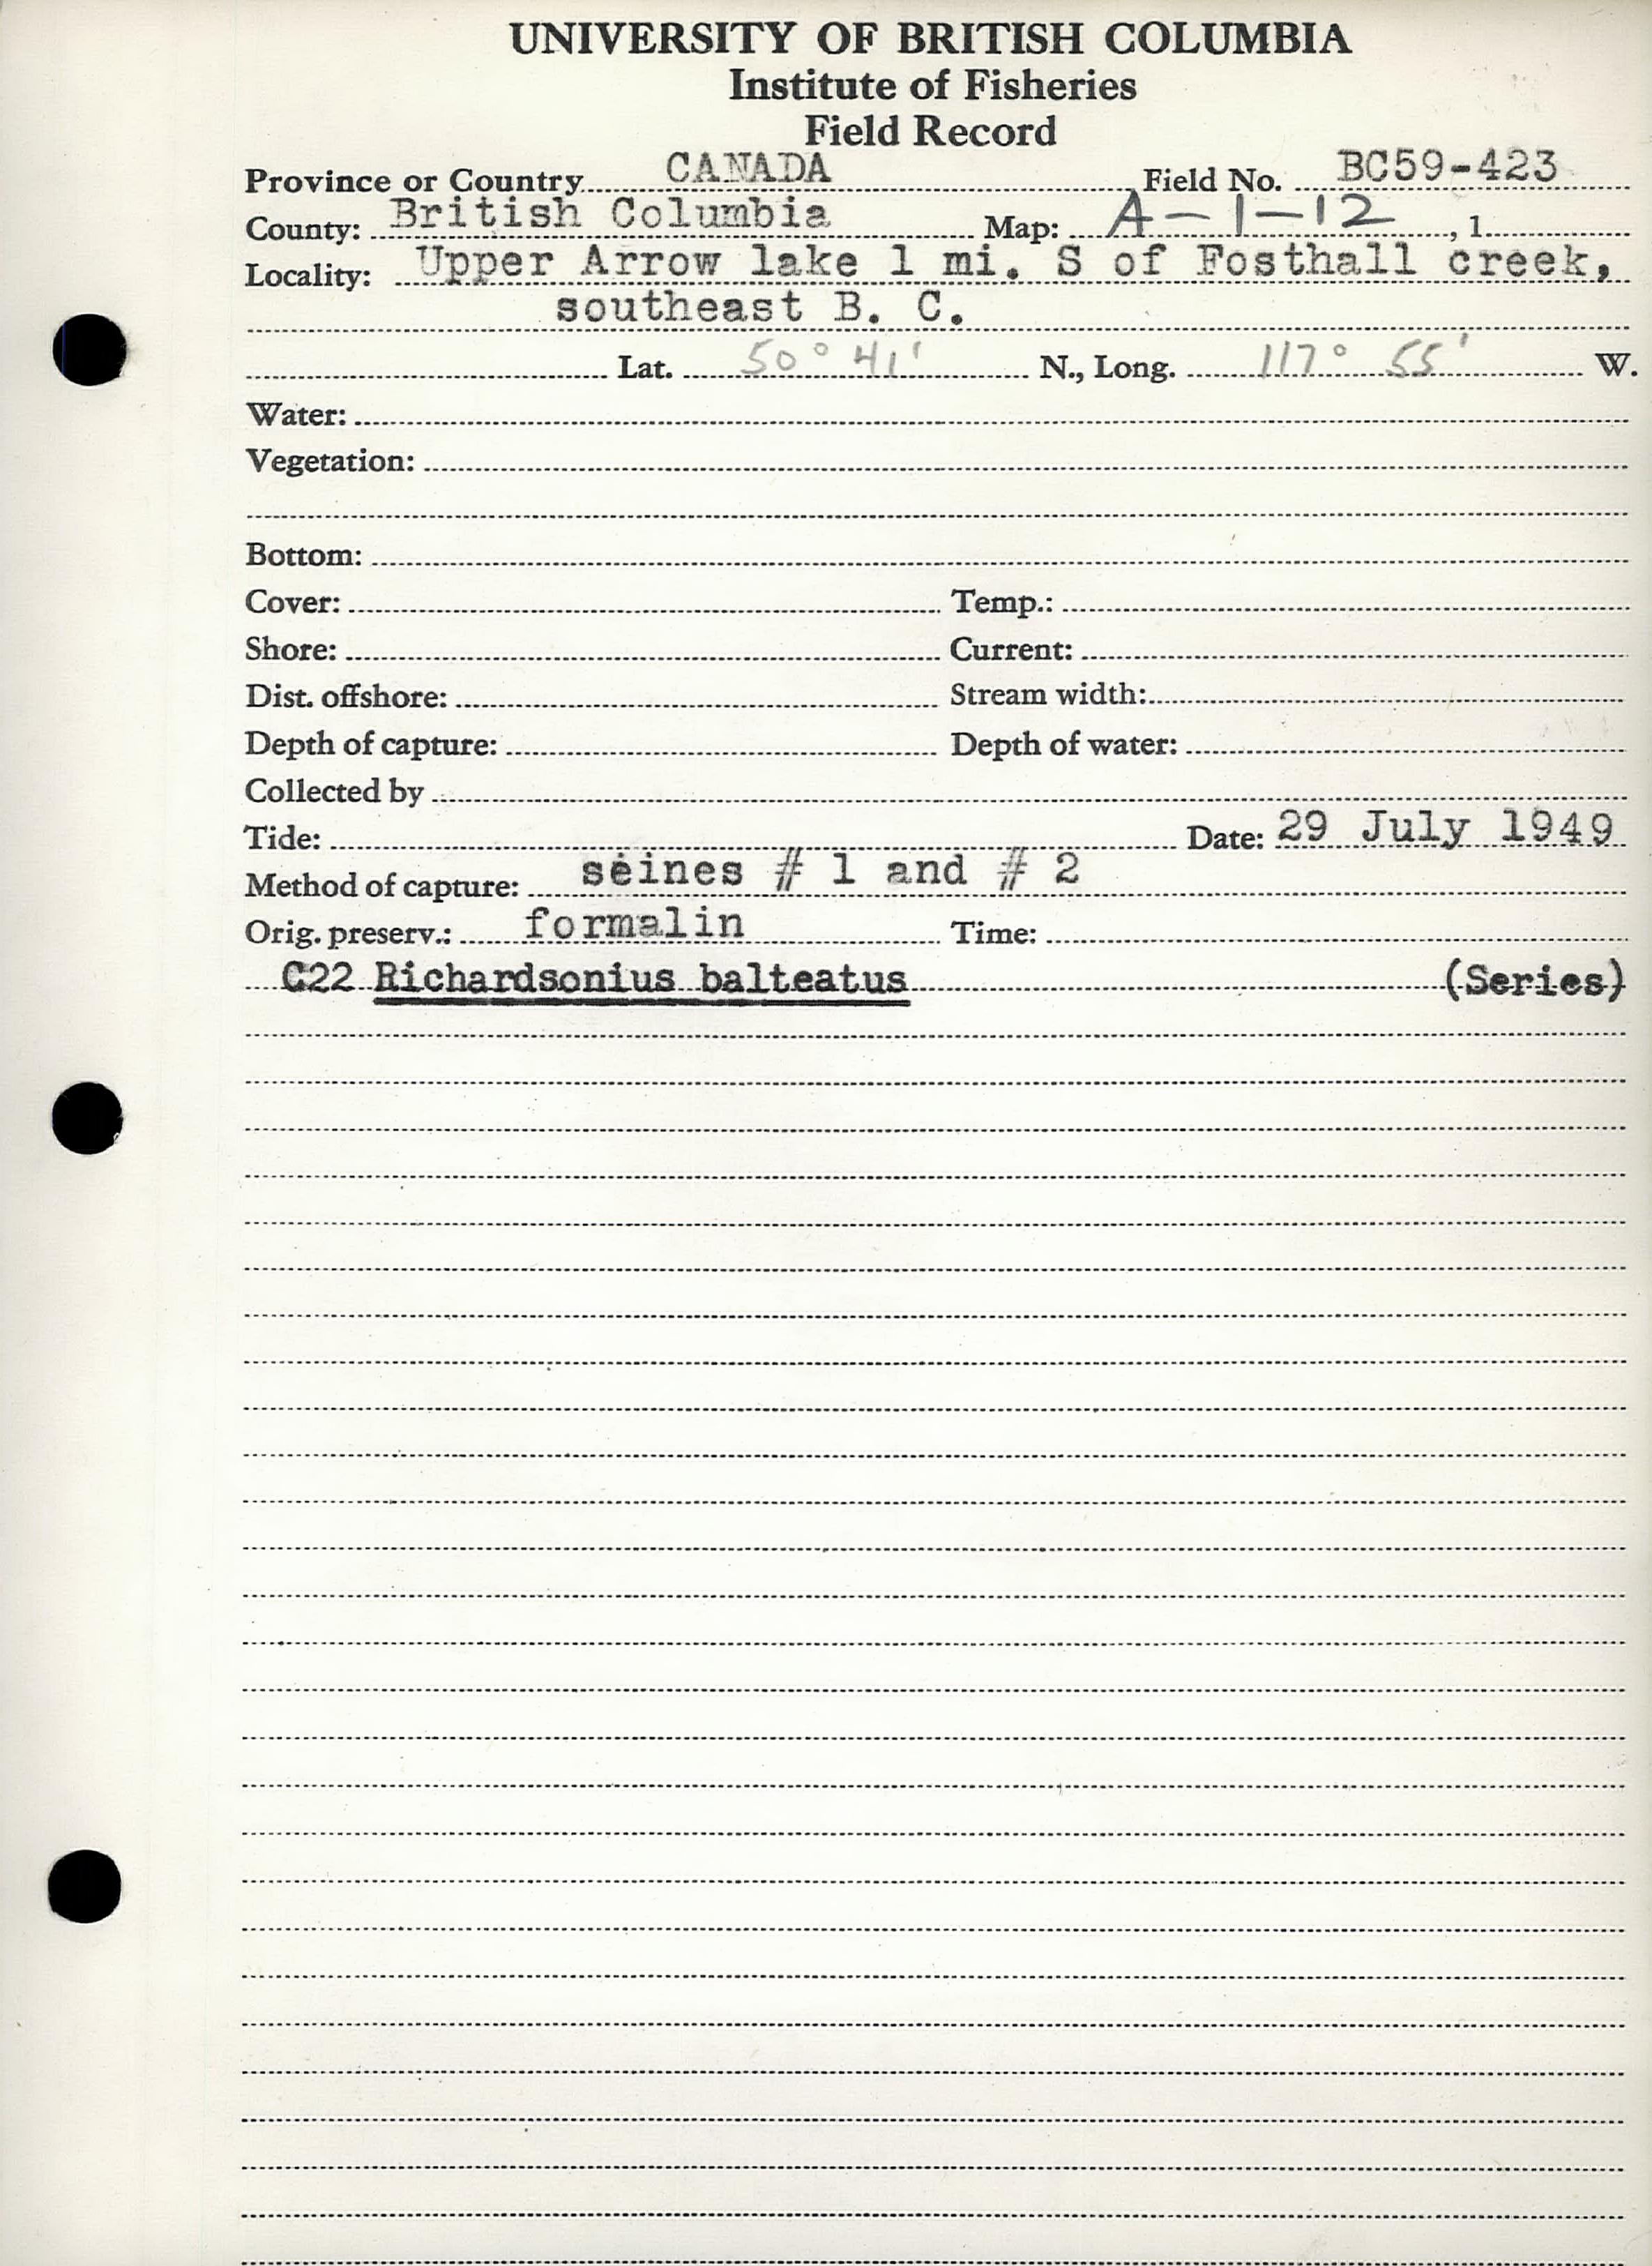 UNIVERSITY OF BRITISH COLUMBIA
Institute of Fisheries
Field Record
Province or Country CANADA Field No. BC59-423
County: British Columbia Map: A-1-12, 1
Locality: Upper Arrow lake 1 mi. S of Fosthall creek,
southeast B. C.
Lat. 50° 41' N., Long. 117° 55' W.
Water:
Vegetation:
Bottom:
Cover: Temp.:
Shore: Current:
Dist. offshore: Stream width:
Depth of capture: Depth of water:
Collected by
Tide: Date: 29 July 1949
Method of capture: seines # 1 and # 2
Orig. preserv.: formalin Time:
C22 Richardsonius balteatus (Series)